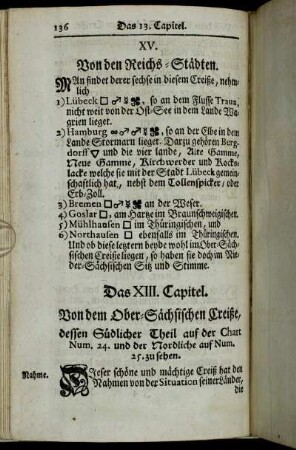 136 Das 13. Capitel.
XV.
Von den Reichs-Städten.
MAn findet derer sechse in diesem Creiße, nehm-
lich
1) Lübeck □ ♂ ☿, so an dem Flusse Trava,
nicht weit von der Ost-See in dem Lande Wa-
grien lieget.
2) Hamburg ∞ ♂ ☿, so an der Elbe in dem
Lande Stormarn lieget. Darzu gehören Berg-
dorff ▽ und die vier lande, Alte Gamme,
Neue Gamme, Kirchwerder und Kocks-
lacke welche sie mit der Stadt Lübeck gemein-
schafftlich hat, nebst dem Tollenspicker, oder
Erb-Zoll.
3) Bremen □ ♂ ☿ an der Weser.
4) Goslar □, am Hartze im Braunschweigischen.
5) Mühlhausen □ im Thüringischen, und
6) Northausen □ ebenfals im Thüringischen.
Und ob diese letztern beyde wohl im Ober-Säch-
sischen Creiße liegen, so haben sie doch im Nie-
der-Sächsischen Sitz und Stimme.
Das XIII. Capitel.
Von dem Ober-Sächsischen Creiße,
dessen Südlicher Theil auf der Chart
Num. 24. und der Nordliche auf Num.
25. zu sehen.
Nahme. DIeser schöne und mächtige Creiß hat den
Nahmen von der Situation seiner Länder,
die